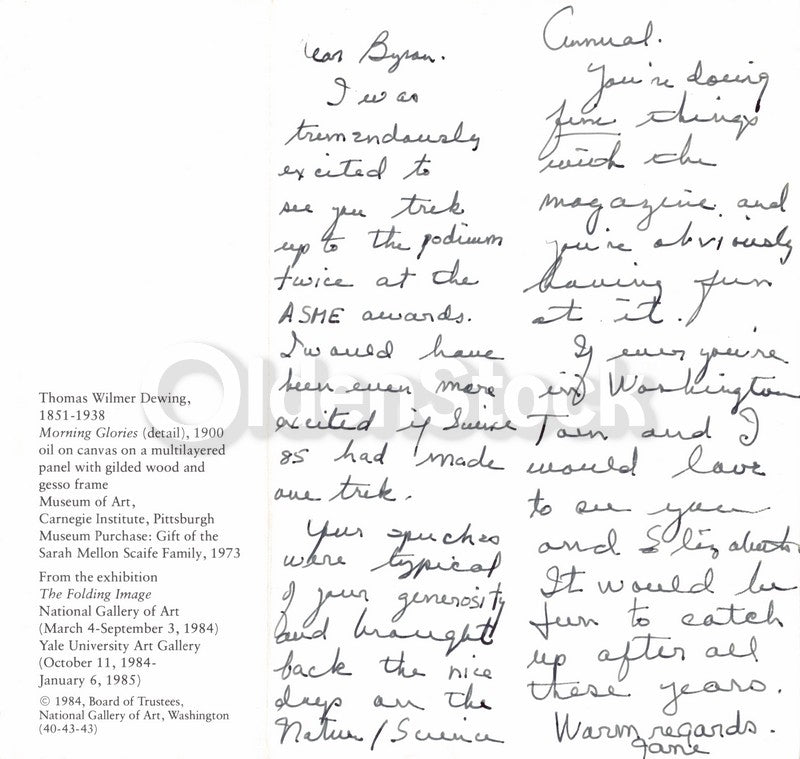 Thomas Wilmer Dewing,
1851-1938
Morning Glories (detail), 1900
oil on canvas on a multilayered
panel with gilded wood and
gesso frame
Museum of Art,
Carnegie Institute, Pittsburgh
Museum Purchase: Gift of the
Sarah Mellon Scaife Family, 1973
From the exhibition
The Folding Image
National Gallery of Art
(March 4-September 3, 1984)
Yale University Art Gallery
(October 11, 1984-
January 6, 1985)
© 1984, Board of Trustees,
National Gallery of Art, Washington
(40-43-43)
Dear Byron.
I was
tremendously
excited to
see you trek
up to the podium
twice at the
ASME awards.
I would have
been even more
excited if Science
85 had made
one trek.
Your speeches
were typical
of your generosity
and brought
back the nice
days on the
Nature/Science
Annual.
You're doing
fine things
with the
magazine and
you're obviously
having fun
at it.
If ever you're
in Washington
Tom and I
would love
to see you
and Elizabeth.
It would be
fun to catch
up after all
these years.
Warm regards.
Jane
OldenStock